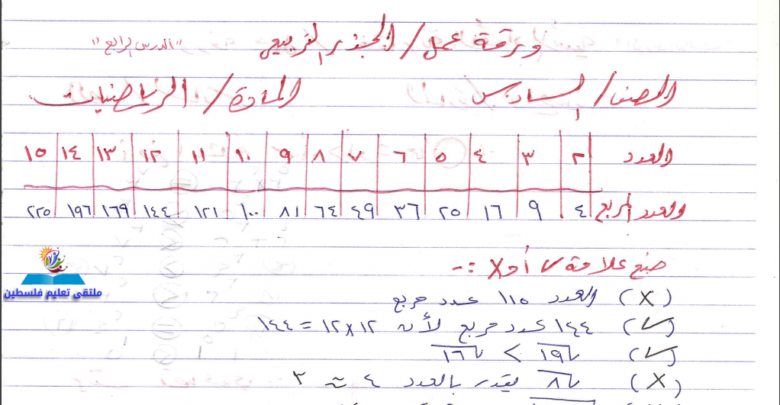 ورقة عمل / الجذر التربيعي "الدرس الرابع"
الصف / السادس المادة / الرياضيات
العدد ٢ ٣ ٤ ٥ ٦ ٧ ٨ ٩ ١٠ ١١ ١٢ ١٣ ١٤ ١٥
العدد المربع ٤ ٩ ١٦ ٢٥ ٣٦ ٤٩ ٦٤ ٨١ ١٠٠ ١٢١ ١٤٤ ١٦٩ ١٩٦ ٢٢٥
ضع علامة √ أو X :-
(X) العدد ١١٥ عدد مربع
(√) ١٤٤ عدد مربع لأن ١٢×١٢ = ١٤٤
(√) √١٩ > √١٦
(X) √٨ يقدر بالعدد ٤ ≈ ٣
ملتقى تعليم فلسطين